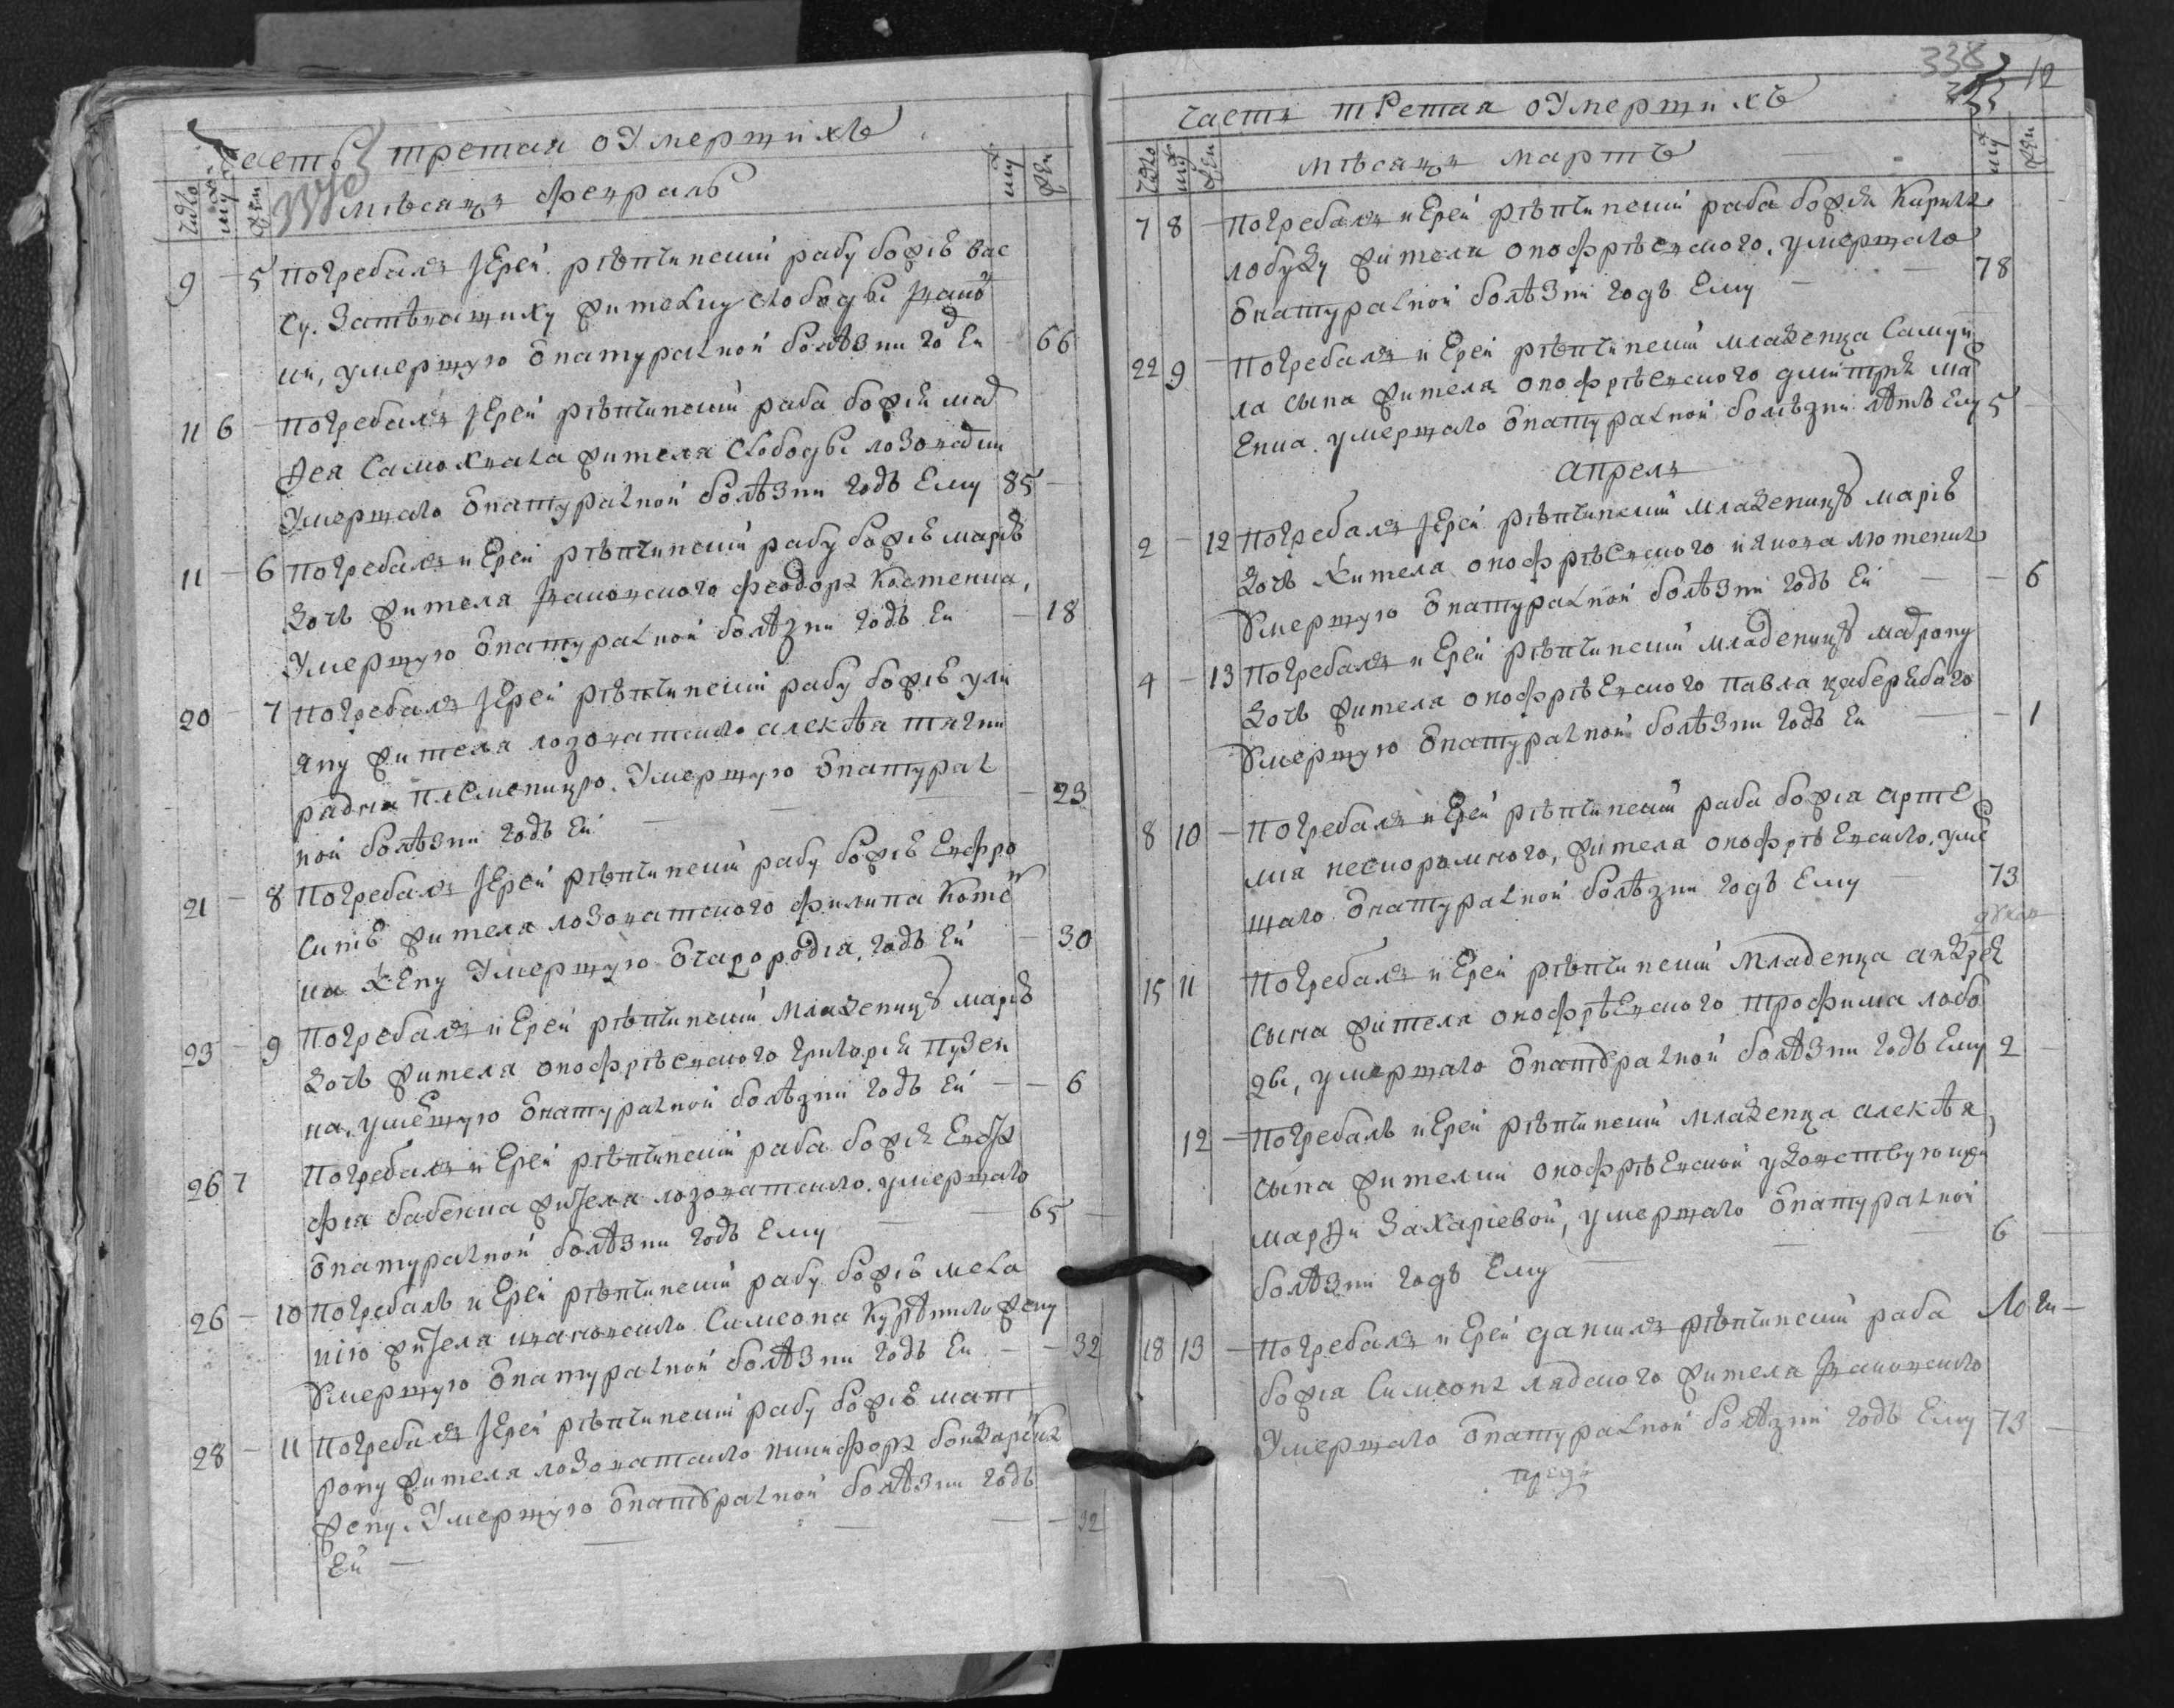 Часть третая оумерших
338
мѣсяцъ февраль
число
муж
жен
муж
жен
9 - 5 погребалъ Іерей рѣпчинский рабу божію Вас
су. жителку слободы
ки, умершую Бнатуралной болѣзни год Ей - 66
11 6 - погребалъ Іерей рѣпчинский раба божия мад
фея жителя слободы лозоватки
Умершаго Бнатуралной болѣзни годъ Ему 85 -
11 - 6 погребалъ иЕрей рѣпчинский рабу божію марію
дочь жителя феодора Костенка,
Умершую Бнатуралной болѣзни годъ Ей - 18
20 - 7 погребалъ Іерей рѣпчинский рабу божію ули
яну жителя лозоватского алексѣя тягни
рядна племеницю. Умершую Бнатурал
ной болѣзни годъ Ей - 23
21 - 8 погребалъ Іерей рѣпчинский рабу божію Евфро
синію жителя лозоватского филипа
ка жену Умершую Бчадородия, годъ Ей - 30
23 - 9 погребалъ иЕрей рѣпчинский младеницу марію
дочь жителя онофріевского григорія Пузен
ка, умершую Бнатуралной болѣзни годъ Ей - - 6
26 7 погребалъ иЕрей рѣпчинский раба божия Евф
фия бабенка жителя лозоватского. умершаго
Бнатуралной болѣзни годъ Ему 65 -
26 - 10 погребаль иЕрей рѣпчинский рабу божію мела
нію жителя Симеона жену
Умершую Бнатуралной болѣзни годъ Ей - - 32
28 - 11 погребалъ Іерей рѣпчинский рабу божію мат
рону жителя лозоватского никифора
жену. Умершую Бнатуралной болѣзни годъ
Ей - - 32
338
12
Часть третая оУмерших
мѣсяцъ мартъ
число
муж
жен
муж
жен
7 8 - погребалъ иЕрей рѣпчинский раба божия Кирила
лобуду жителя онофріевского. умершаго
Бнатуралной болѣзни годъ Ему - 78
22 9 - погребалъ иЕрей рѣпчинский младенца Самуи
ла сына жителя онофріевского дмитрия
Енка. умершаго Бнатуралной болѣзни лѣтъ Ему 5 -
апрель
2 - 12 погребалъ Іерей рѣпчинский младеницу марію
дочь жителя онофріевского иякова лютенко
Умершую Бнатуралной болѣзни годъ Ей - - 6
4 - 13 погребалъ иЕрей рѣпчинский младеницу мадрону
дочь жителя онофріевского павла цаберябаго
Умершую Бнатуралной болѣзни годъ Ей - - 1
8 10 - погребалъ иЕрей рѣпчинский раба божия арте
мия нескоромного, жителя онофріевского. уме
шаго Бнатуралной болѣзни годъ Ему 73
15 11 погребалъ иЕрей рѣпчинский младенца андрея
сына жителя онофріевского трофима лобо
ды, умершаго Бнатуралной болѣзни годъ Ему 2 -
12 - погребаль иЕрей рѣпчинский младенца алексѣя,
сына жителки онофріевской удовствующи
марфи Захаріевой, умершаго Бнатуралной
болѣзни годъ Ему 6
18 13 - погребалъ иЕрей данилъ рѣпчинский раба
божия Симеона лядского жителя
Умершаго Бнатуралной болѣзни годъ Ему 73 -